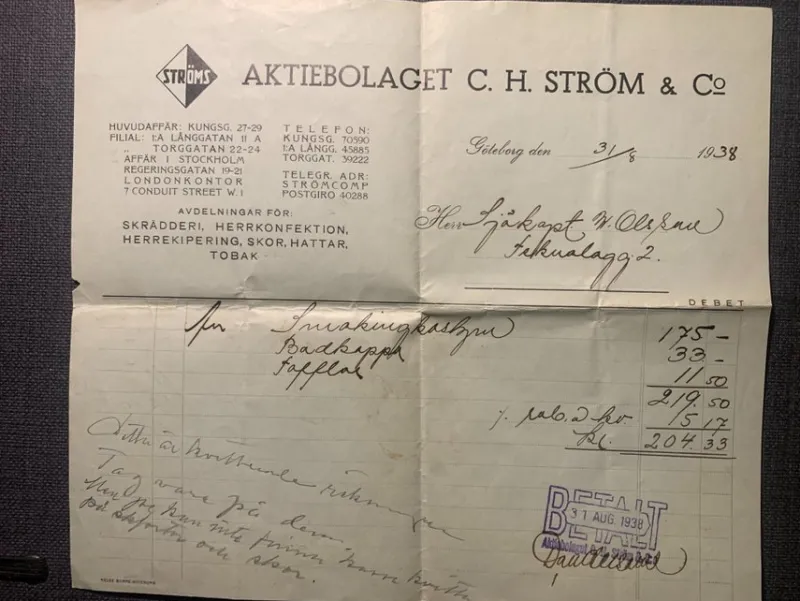 STRÖMS
AKTIEBOLAGET C. H. STRÖM & Co
HUVUDAFFÄR: KUNGSG. 27-29
FILIAL: 1:A LÅNGGATAN 11 A
„ TORGGATAN 22-24
AFFÄR I STOCKHOLM
REGERINGSGATAN 19-21
LONDONKONTOR
7 CONDUIT STREET W. 1
TELEFON:
KUNGSG. 70590
1:A LÅNGG. 45885
TORGGAT. 39222
TELEGR. ADR:
STRÖMCOMP
POSTGIRO 40288
AVDELNINGAR FÖR:
SKRÄDDERI, HERRKONFEKTION,
HERREKIPERING, SKOR, HATTAR,
TOBAK
Göteborg den 31/8 1938
Herr Sjökapt. W. Olsson
2.
DEBET
Smokingkostym 175 –
Badkappa 33. –
Tofflor 11 50
219. 50
rab. a kv. 15 17
Kr. 204. 33
Detta är kvitterade räkningar
Tag vara på dem
Men jag kan inte finna kvitto
på skjortor och skor.
BETALT
31 AUG. 1938
Aktiebolaget C. H. Ström & Co